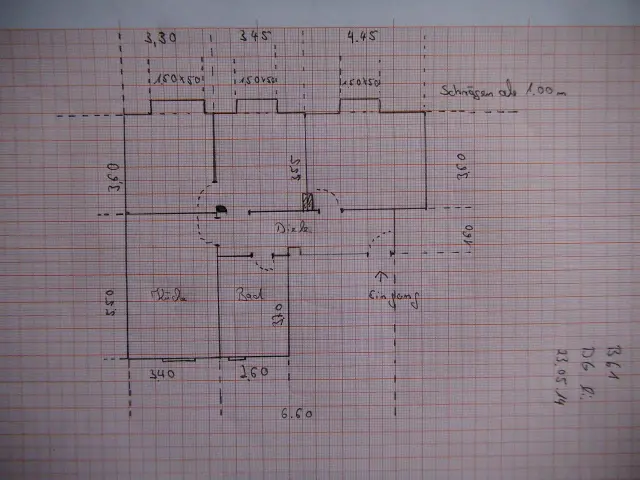 3,30
3.45
4.45
150x50
150x50
150x50
Schrägen ab 1.00m
3,60
3.55
3.60
Diele
1.60
5.50
Küche
Bad
3.70
Eingang
3.40
2.60
6.60
B 61
DG li.
23.05.14